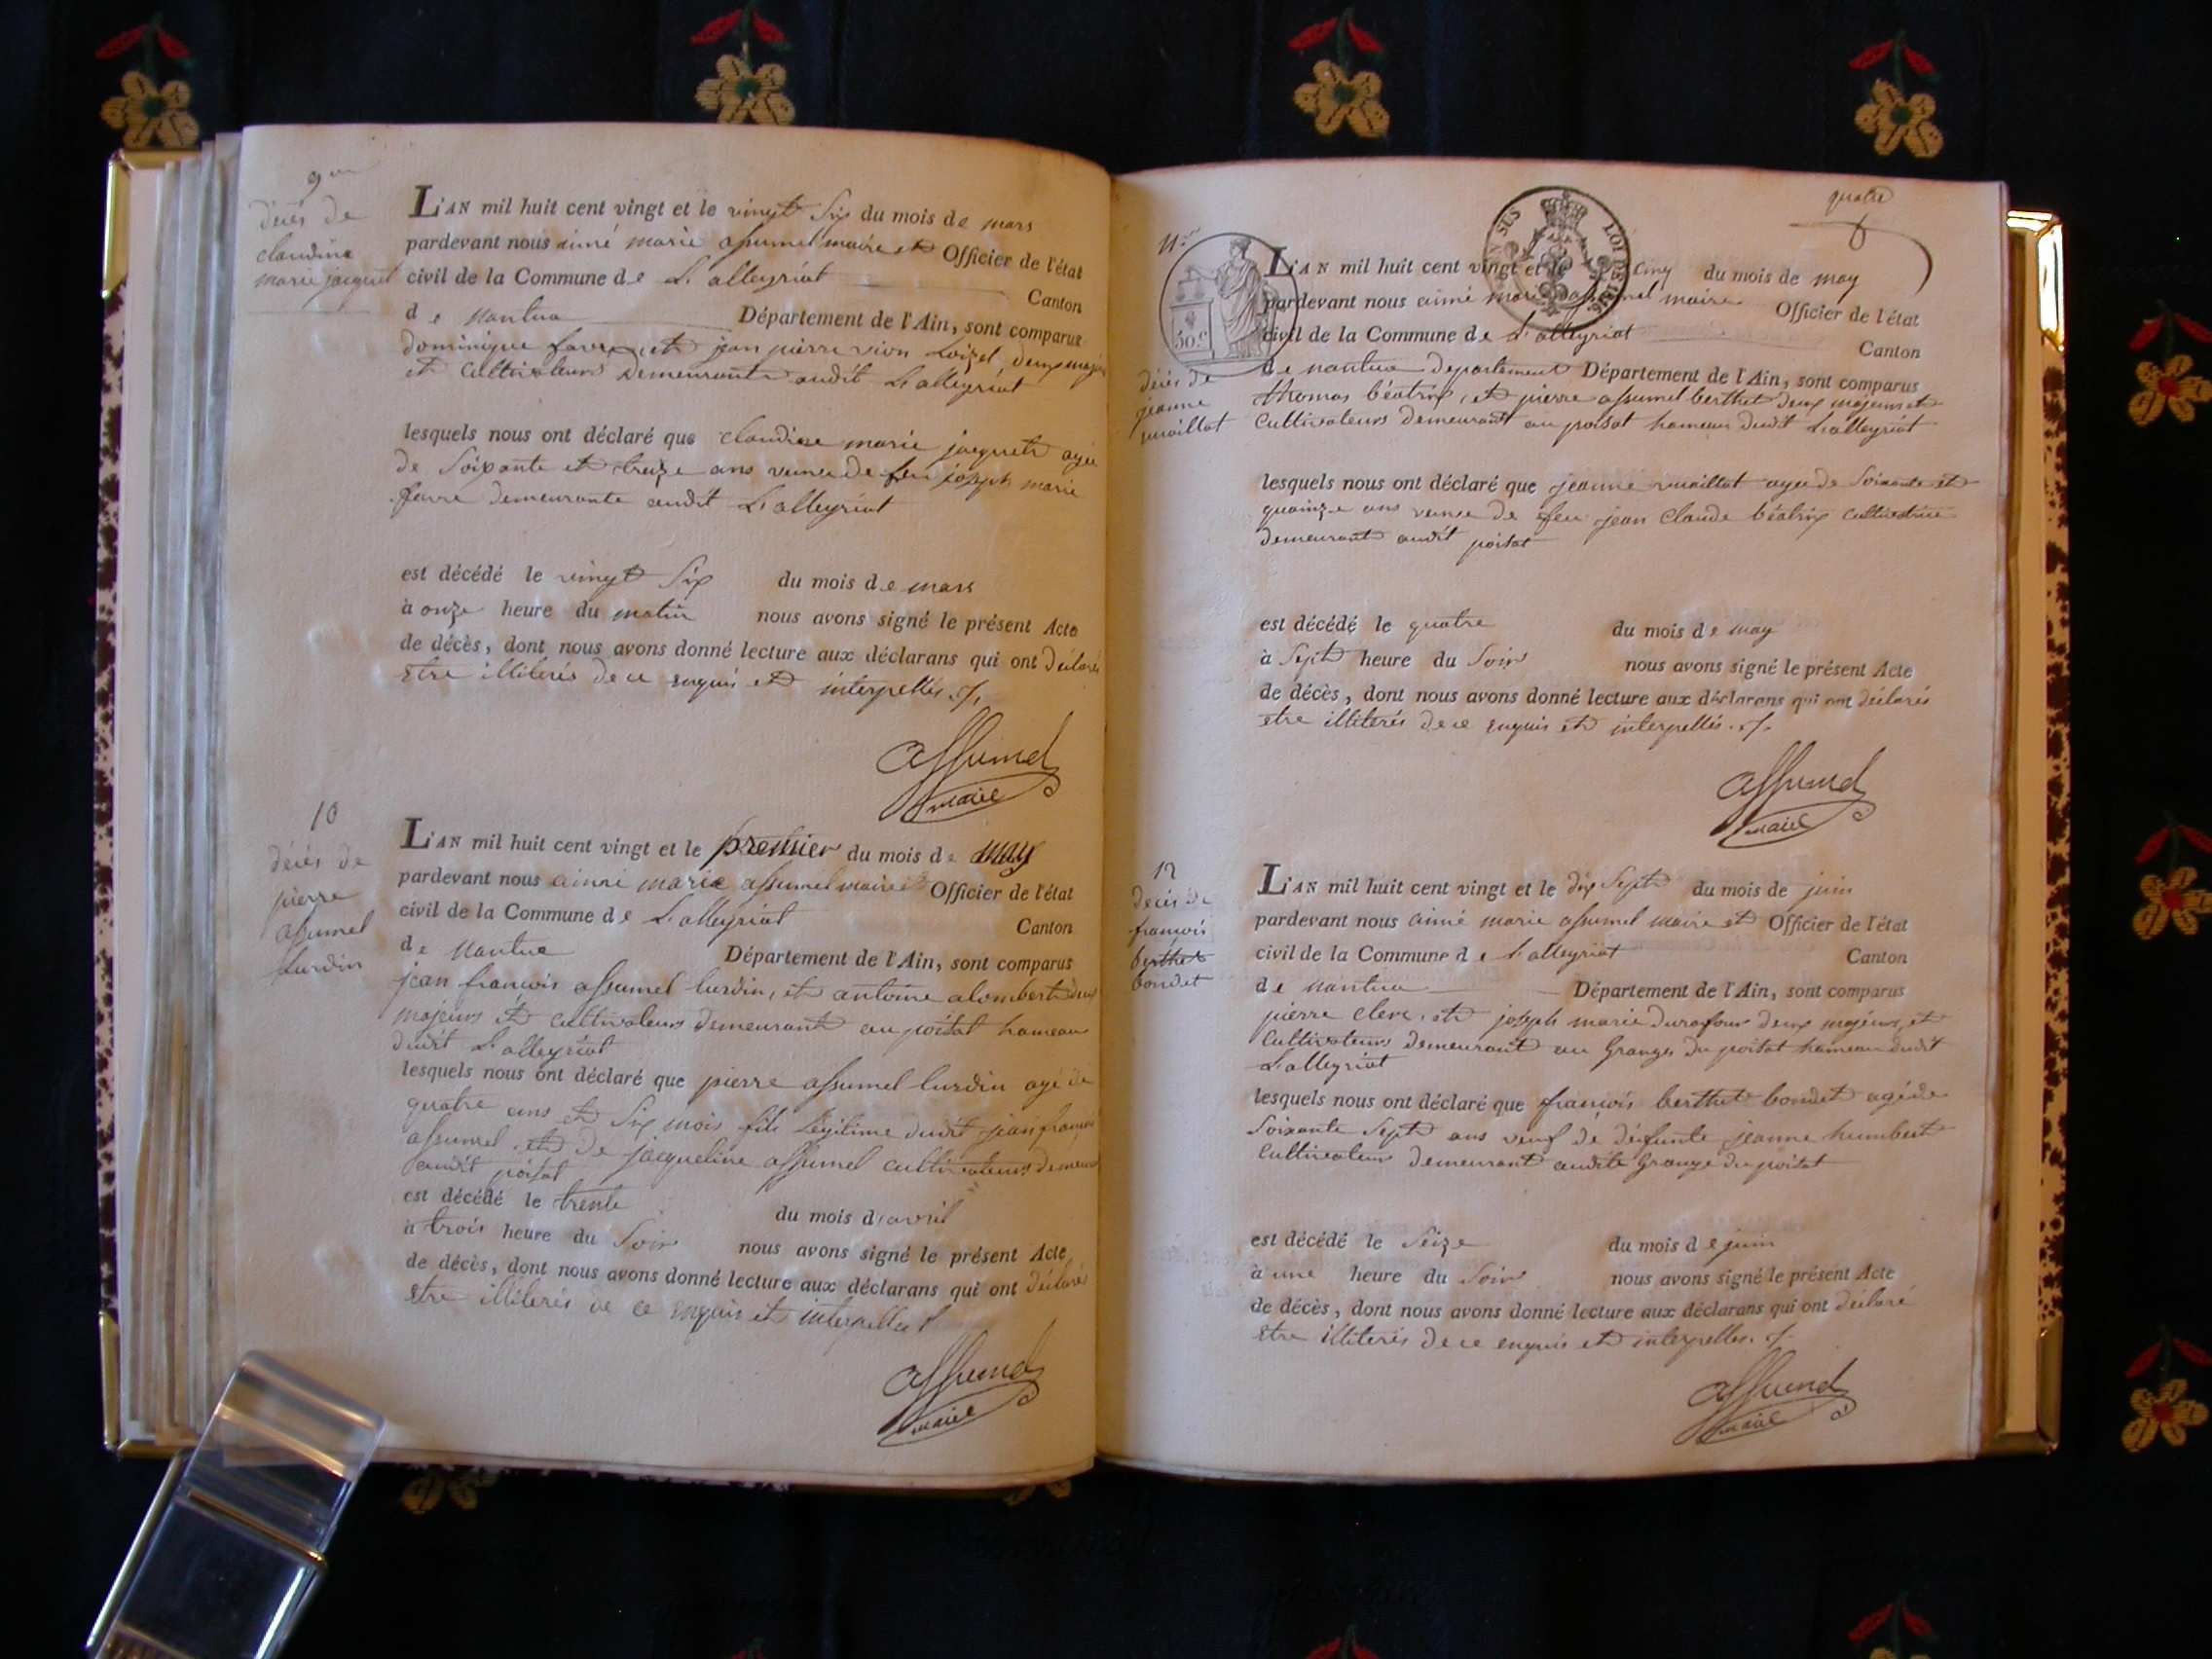 9
décès de
claudine
marie jacquet
L'AN mil huit cent vingt et le vingt six du mois de mars
pardevant nous aimé marie assumel maire et Officier de l'état
civil de la Commune de L'alleyriat Canton
de nantua Département de l'Ain, sont comparus
dominique favre, et jean pierre vion loizel deux majeurs
et Cultivateurs demeurants audit L'alleyriat
lesquels nous ont déclaré que claudine marie jacquet agée
de soixante et treize ans veuve de feu joseph marie
favre demeurante audit L'alleyriat
est décédé le vingt six du mois de mars
à onze heure du matin nous avons signé le présent Acte
de décès, dont nous avons donné lecture aux déclarans qui ont déclarés
etre illiterés de ce enquis et interpellés
assumel
maire
10
décès de
pierre
assumel
lurdin
L'AN mil huit cent vingt et le premier du mois de may
pardevant nous aimé marie assumel maire et Officier de l'état
civil de la Commune de L'alleyriat Canton
de nantua Département de l'Ain, sont comparus
jean françois assumel lurdin, et antoine alombert deux
majeurs et cultivateurs demeurant au poisat hameau
dudit L'alleyriat
lesquels nous ont déclaré que pierre assumel lurdin agé de
quatre ans et six mois fils legitime dudit jean françois
assumel et de jacqueline assumel cultivateurs
audit poisat
est décédé le trente du mois d'avril
à trois heure du soir nous avons signé le présent Acte
de décès, dont nous avons donné lecture aux déclarans qui ont déclarés
etre illiterés de ce enquis et interpellés
assumel
maire
quatre
11
SUS LOI DE 1816
50 c
décès de
jeanne
vuaillat
L'AN mil huit cent vingt et le cinq du mois de may
pardevant nous aimé marie assumel maire Officier de l'état
civil de la Commune de L'alleyriat Canton
de nantua departement Département de l'Ain, sont comparus
thomas béatrix, et pierre assumel berthet deux majeurs et
cultivateurs demeurant au poisat hameau dudit L'alleyriat
lesquels nous ont déclaré que jeanne vuaillat agée de soixante et
quainze ans veuve de feu jean claude béatrix cultivatrice
demeurant audit poisat
est décédé le quatre du mois de may
à sept heure du soir nous avons signé le présent Acte
de décès, dont nous avons donné lecture aux déclarans qui ont déclarés
etre illiterés de ce enquis et interpellés
assumel
maire
12
décès de
françois
berthet
bondet
L'AN mil huit cent vingt et le dix sept du mois de juin
pardevant nous aimé marie assumel maire et Officier de l'état
civil de la Commune de L'alleyriat Canton
de nantua Département de l'Ain, sont comparus
pierre clerc, et joseph marie durafour deux majeurs, et
cultivateurs demeurant au Granges du poisat hameau dudit
L'alleyriat
lesquels nous ont déclaré que françois berthet bondet agé de
soixante sept ans veuf de défunte jeanne humbert
cultivateur demeurant audite Grange du poisat
est décédé le seize du mois de juin
à une heure du soir nous avons signé le présent Acte
de décès, dont nous avons donné lecture aux déclarans qui ont déclaré
etre illiterés de ce enquis et interpellés
assumel
maire